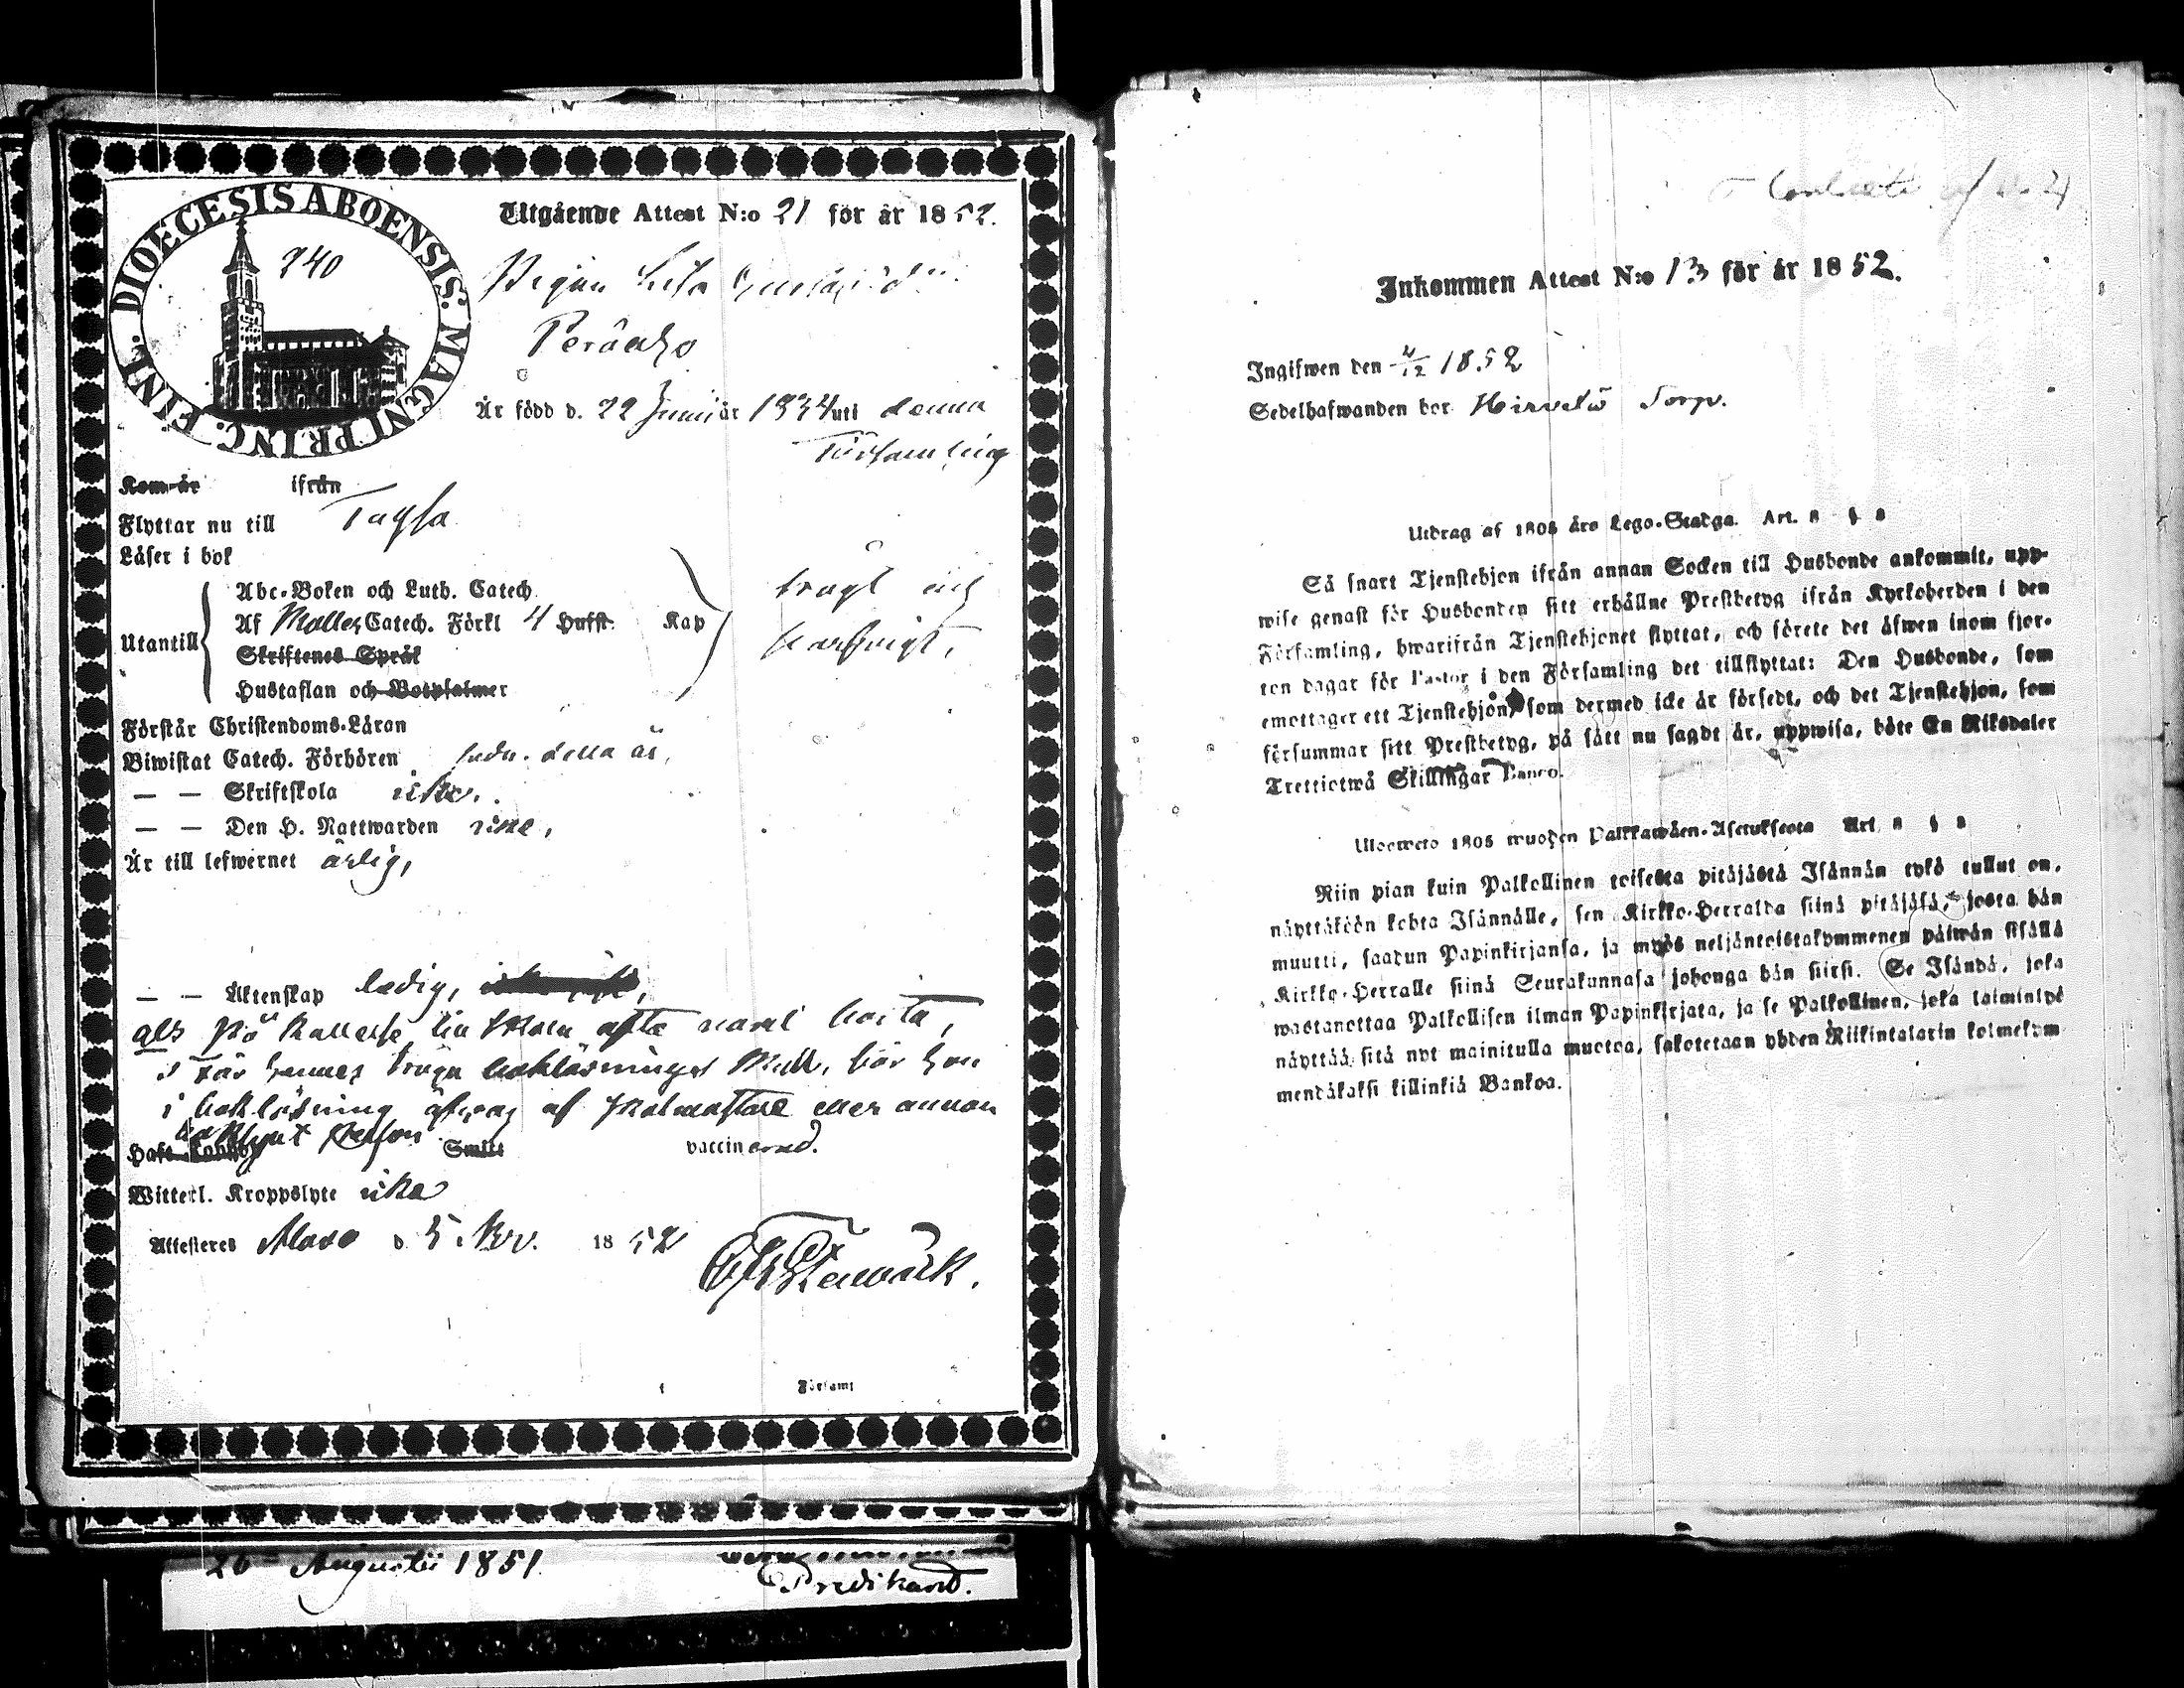 DIOECESIS ABOENSIS. MAGNI PRINC. FINL.
240
Utgående Attest N:o 21 för år 1852.
Pigan Lisa
Är född d. 22 Junii år 1834 uti denna
Församling
Kom år ifrån
Flyttar nu till
Läser i bok
Utantill
Abc-Boken och Luth. Catech
Af Catech. Förkl 4 Hufst. Kap
Skriftenes Språk
Hustaflan och Botpsalmer
trögt och
Förstår Christendoms-Läran
Biwistat Catech. Förhören sedn. detta år,
— — Skriftskola icke.
— — Den H. Nattwarden icke,
Är till lefwernet ärlig,
— — Äktenskap ledig,
på kallelse till skola ofta varit borta,
för hennes tröga bokläsnings skull, bör hon
i bokläsning öfvas af skolmästare eller annan
person
Haft Koppor Smitt vaccinerad.
Witterl. Kroppslyte icke
Attesteres d. 5 Nov. 1852
Församl
26 Augusti 1851.
Predikand.
Inkommen Attest N:o 13 för år 1852.
Ingifwen den 4/12 1852
Sedelhafwanden bor Hirvelä Torp.
Utdrag af 1805 års Lego-Stadga. Art. 8 § 8
Så snart Tjenstehjon ifrån annan Socken till Husbonde ankommit, upp-
wise genast för Husbonden sitt erhållne Prestbetyg ifrån Kyrkoherden i den
Församling, hwarifrån Tjenstehjonet flyttat, och förete det äfwen inom fjor-
ton dagar för Pastor i den Församling det tillflyttat: Den Husbonde, som
emottager ett Tjenstehjon, som dermed icke är försedt, och det Tjenstehjon, som
försummar sitt Prestbetyg, på sätt nu sagdt är, uppwisa, böte En Riksdaler
Trettiotwå Skillingar Banco.
Ulosweto 1805 wuoden Palkkawäen-Asetuksesta Art. 8 § 8
Niin pian kuin Palkollinen toisesta pitäjästä Isännän tykö tullut on,
näyttäköön kohta Isännälle, sen Kirkko-Herralda siinä pitäjäsä, josta hän
muutti, saadun Papinkirjansa, ja myös neljäntoistakymmenen päiwän sisällä
Kirkko-Herralle siinä Seurakunnasa johonga hän siirsi. Se Isändä, joka
wastanottaa Palkollisen ilman Papinkirjata, ja se Palkollinen, joka laiminlyö
näyttää sitä nyt mainitulla muotoa, sakotetaan yhden Riikintalarin kolmekym-
mendäkaksi killinkiä Bankoa.